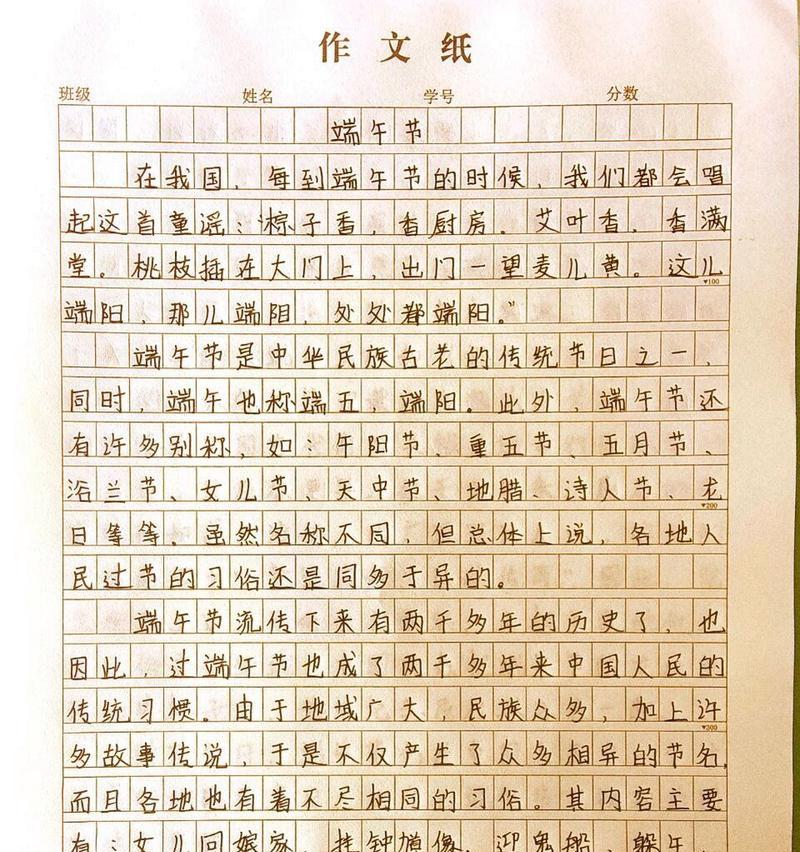 作文纸
班级 姓名 学号 分数
端午节
在我国，每到端午节的时候，我们都会唱
起这首童谣：“棕子香，香厨房。艾叶香，香满
堂。桃枝插在大门上，出门一望麦儿黄。这儿
▼100
端阳，那儿端阳，处处都端阳。”
端午节是中华民族古老的传统节日之一，
同时，端午也称端五，端阳。此外，端午节还
有许多别称，如：午阳节、重五节、五月节、
浴兰节、女儿节、天中节、地腊、诗人节、龙
▼200
日等等。虽然名称不同，但总体上说，各地人
民过节的习俗还是同多于异的。
端午节流传下来有两千多年的历史了，也
因此，过端午节也成了两千多年来中国人民的
传统习惯。由于地域广大，民族众多，加上许
▼300
多故事传说，于是不仅产生了众多相异的节名，
而且各地也有着不尽相同的习俗。其内容主要
有：女儿回娘家，挂钟馗像，迎鬼船，躲午，